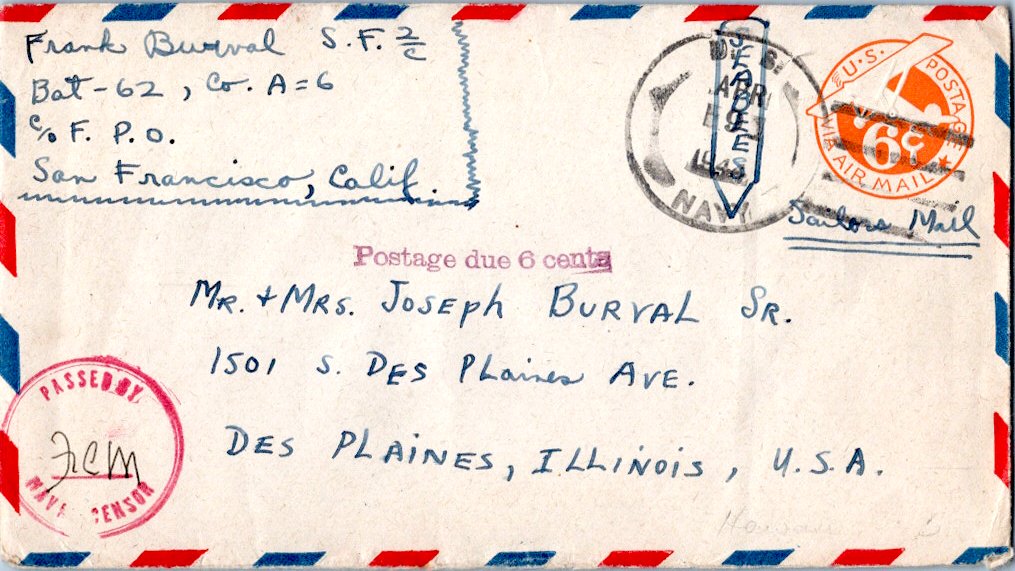 Frank Burval S.F. 2/c
Bat-62, Co. A=6
c/o F. P. O.
San Francisco, Calif.
U. S.
APR
1943
NAVY
SEABEES
U.S. POSTAGE
6¢
VIA AIR MAIL
Sailors Mail
Postage due 6 cents
Mr. + Mrs. Joseph Burval Sr.
1501 S. Des Plaines Ave.
Des Plaines, Illinois, U.S.A.
PASSED BY
FCM
NAVAL CENSOR